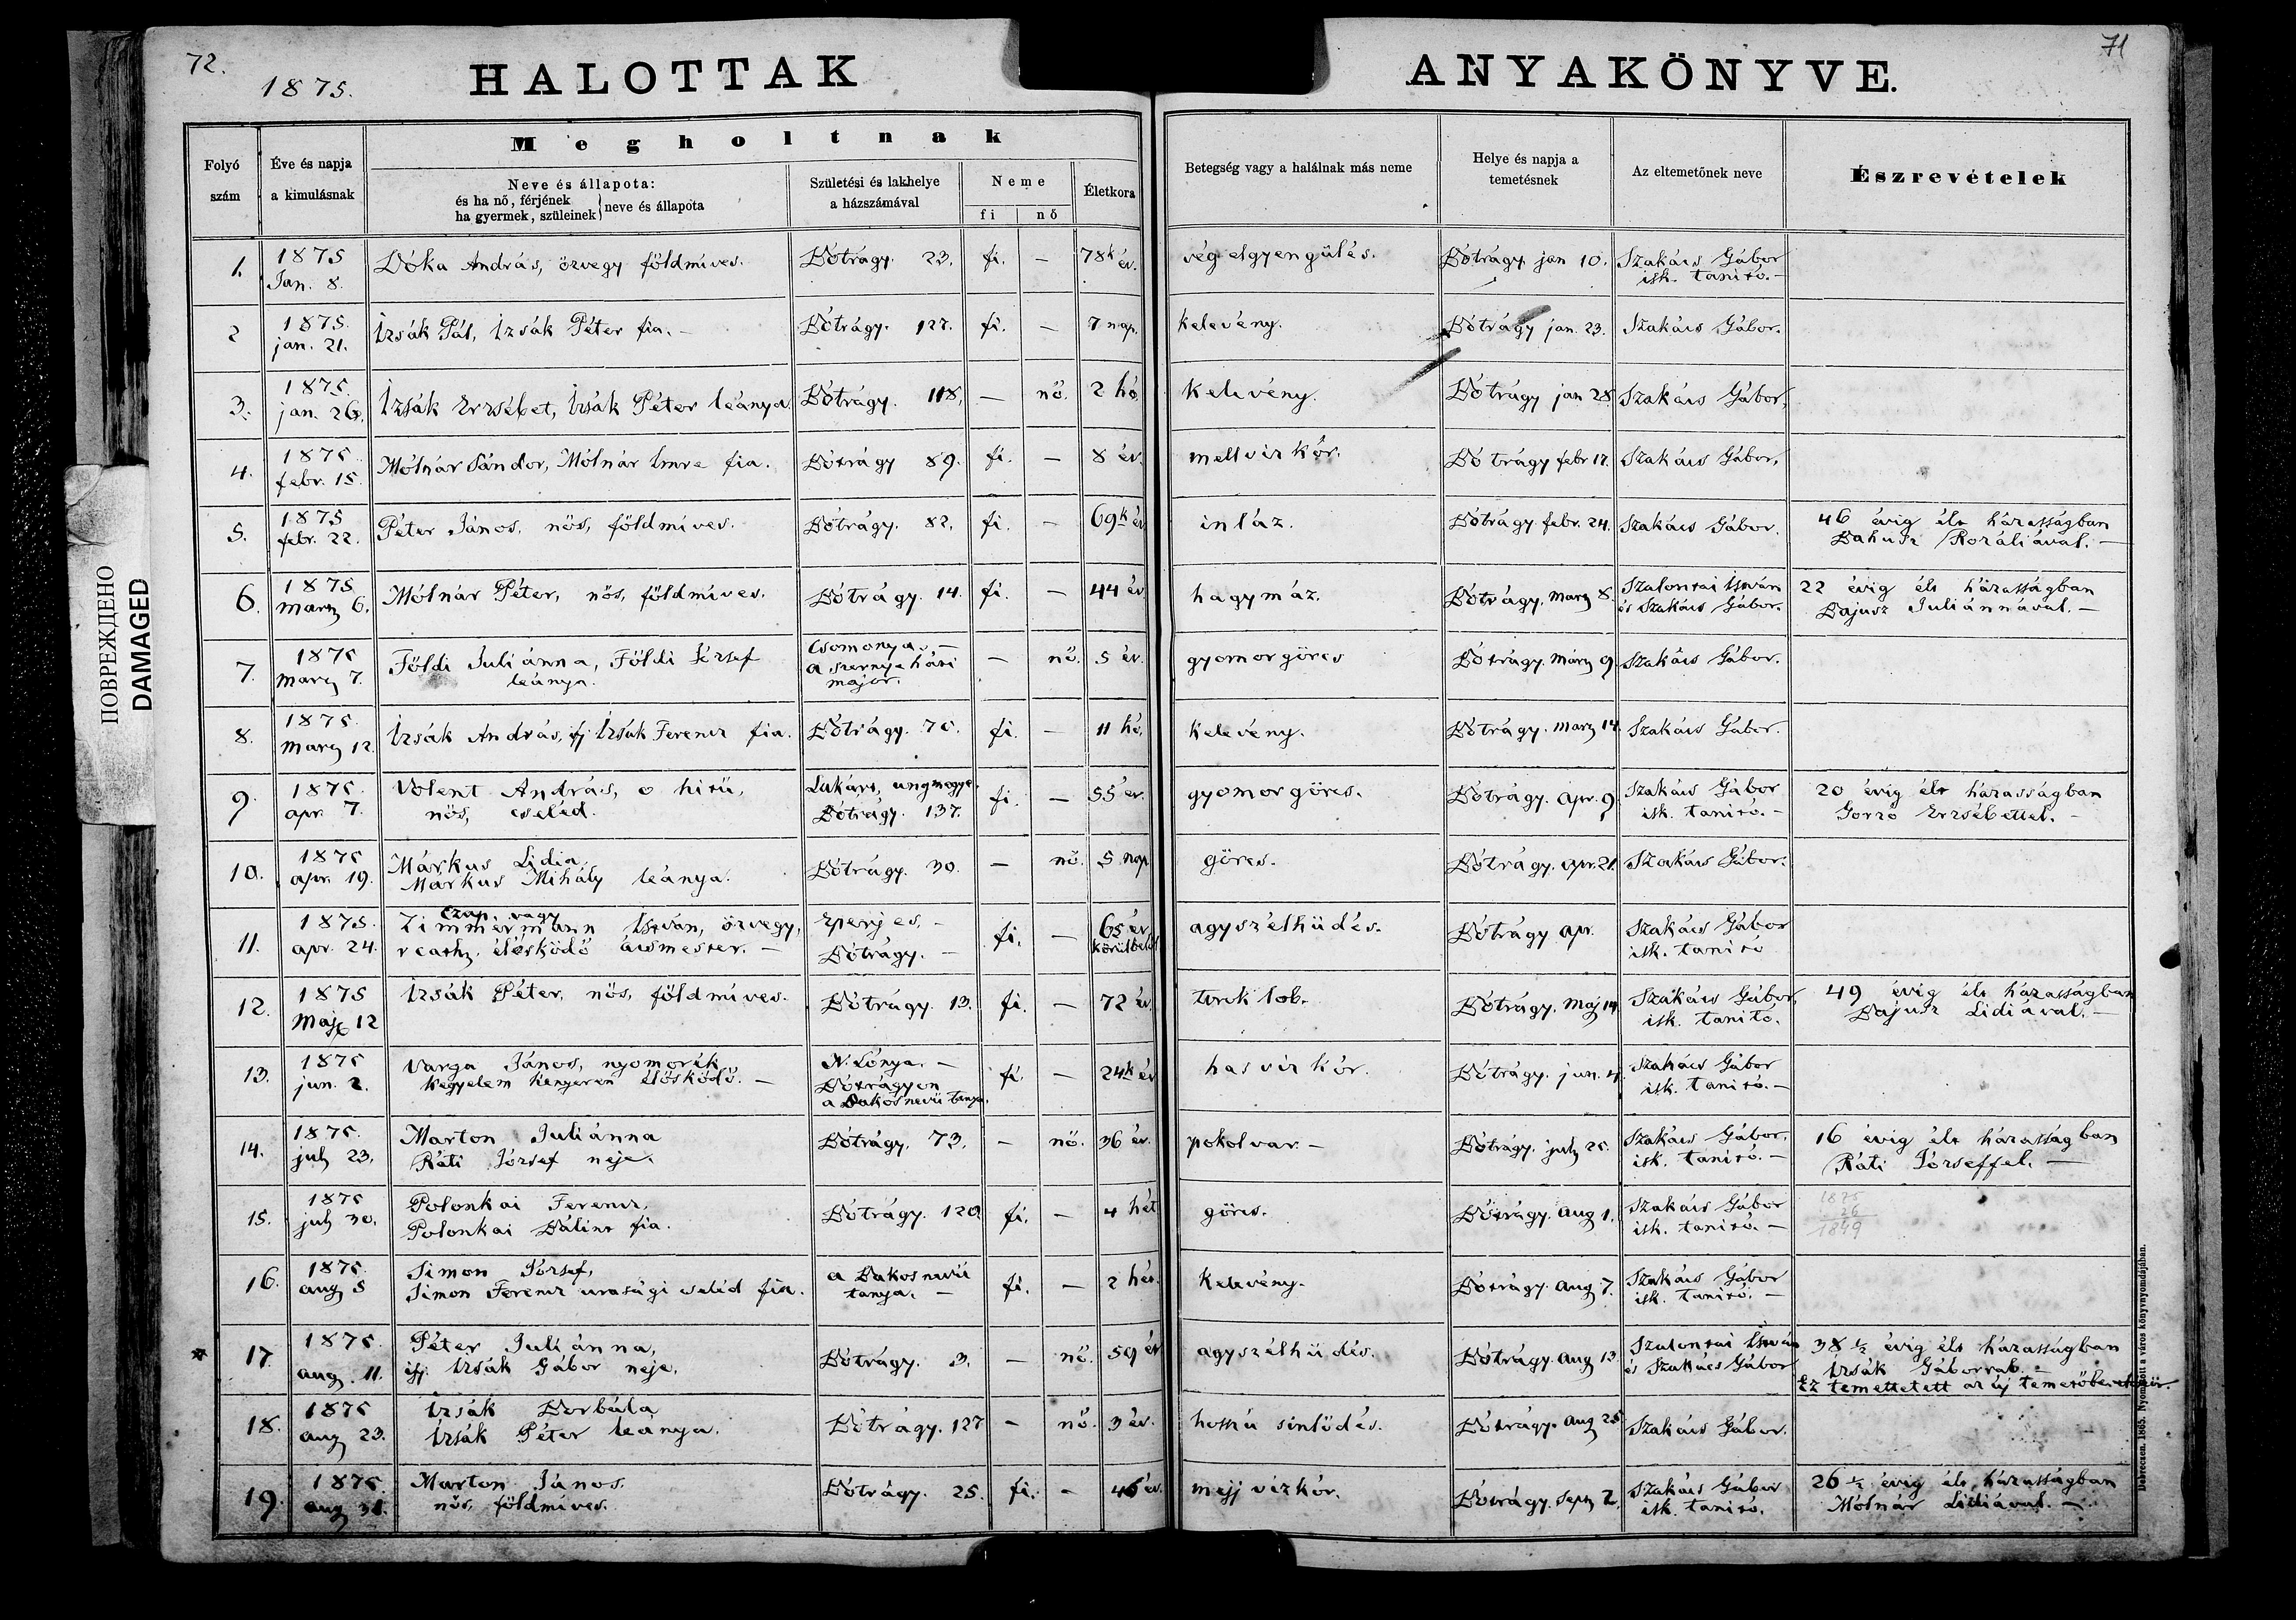 72.
1875.
HALOTTAK
ANYAKÖNYVE.
71
Megholtnak
Folyó szám
Éve és napja a kimulásnak
Neve és állapota: és ha nő, férjének ha gyermek, szüleinek } neve és állapota
Születési és lakhelye a házszámával
Neme
fi
nő
Életkora
Betegség vagy a halálnak más neme
Helye és napja a temetésnek
Az eltemetőnek neve
Észrevételek
1. 1875 Jan. 8. Dóka András, özvegy földmíves. Bótrágy. 23. fi. — 78k év. vég elgyengülés. Bótrágy. jan 10. Szakács Gábor isk. tanító.—
2 1875. jan. 21. Izsák Pál, Izsák Péter fia.— Bótrágy. 127. fi. — 7 nap. kelevény. Bótrágy jan. 23. Szakács Gábor.
3. 1875. jan. 26. Izsák Erzsébet, Izsák Péter leánya. Bótrágy. 118. — nő. 2 hó. kelevény. Bótrágy jan 28. Szakács Gábor.
4. 1875 febr. 15. Mólnár Sándor, Mólnár Imre fia. Bótrágy 89. fi. — 8 év. mellvizkór. Bótrágy febr 17. Szakács Gábor.
5. 1875 febr. 22. Péter János, nős, földmíves. Bótrágy. 82. fi. — 69k év inláz. Bótrágy. febr. 24. Szakács Gábor. 46 évig élt házasságban Bakusz Rozáliával.—
6. 1875. marcz 6. Mólnár Péter, nős, földmíves. Bótrágy. 14. fi. — 44 év hagymáz. Bótrágy, marcz 8. Szalontai István és Szakács Gábor. 22 évig élt házasságban Bajusz Juliánnával.—
7. 1875 marcz 7. Földi Juliánna, Földi József leánya. Csomonya.— a szernyeháti major. — nő. 5 év. gyomorgörcs Bótrágy. márcz 9. Szakács Gábor.
8. 1875. marcz 12 Izsák András, ifj Izsák Ferencz fia. Bótrágy. 75. fi. — 11 hó. kelevény. Bótrágy. marcz 14. Szakács Gábor.
9. 1875. apr. 7. Volent András, o hitü, nős, cseléd. Lakárt, ungmegye. Bótrágy. 137. fi. — 55 év. gyomorgörcs. Bótrágy. Apr. 9. Szakács Gábor isk. tanító.— 20 évig élt házasságban Gorzó Erzsébettel.—
10. 1875 apr. 19. Márkus Lidia Márkus Mihály leánya. Bótrágy. 30. — nő. 5 nap görcs. Bótrágy. apr. 21. Szakács Gábor.
11. 1875. apr. 24. Czup. vagy Zimmermann István, özvegy, r cath. élősködő ácsmester.— Eperjes.— Bótrágy.— fi. — 65 év körülbelül agyszélhüdés. Bótrágy apr. Szakács Gábor isk. tanító
12. 1875 Maj. 12 Izsák Péter, nős, földmíves. Bótrágy. 13. fi. — 72 év. torok lob. Bótrágy. Maj 14. Szakács Gábor, isk. tanító. 49 évig élt házasságban Bajusz Lidiával.—
13. 1875 jun. 2. Varga János, nyomorék, kegyelem kenyeren élősködő.— N. Lónya.— Bótrágyon a Bakos nevü tanya. fi. — 24k év hasvizkór. Bótrágy. jun. 4. Szakács Gábor isk. tanító.—
14. 1875. july 23. Marton Juliánna Ráti József neje. Bótrágy. 73. — nő. 36 év. pokolvar.— Bótrágy. july 25. Szakács Gábor. isk. tanító.— 16 évig élt házasságban Ráti Józseffel.—
15. 1875 july 30. Polonkai Ferencz, Polonkai Bálint fia. Bótrágy. 120 fi. — 4 hét görcs. Bótrágy. aug 1. Szakács Gábor isk. tanító.— 1875 26 1849
16. 1875. aug 5 Simon József, Simon Ferencz urasági cseléd fia. a Bakos nevü tanya.— fi. — 2 hét. kelevény. Bótrágy. aug 7. Szakács Gábor isk. tanító.—
17. 1875. aug. 11. Péter Juliánna, ifj. Izsák Gábor neje. Bótrágy. 3. — nő. 59 év agyszélhüdés. Bótrágy. aug 13 Szalontai István és Szakács Gábor 38 ½ évig élt házasságban Izsák Gáborral.— Ez temettetett az új temetőbe
18. 1875 aug 23. Izsák Borbála Izsák Péter leánya. Bótrágy. 127 — nő. 3 év. hosszú sinlődés. Bótrágy. aug 25 Szakács Gábor.
19. 1875. aug 31. Marton János. nős, földmíves. Bótrágy. 25. fi. — 46 év. mejj vizkór. Bótrágy. Sept 2. Szakács Gábor isk. tanító. 26 ½ évig élt házasságban Mólnár Lidiával.—
Debreczen, 1865. Nyomatott a város könyvnyomdájában.
ПОВРЕЖДЕНО
DAMAGED